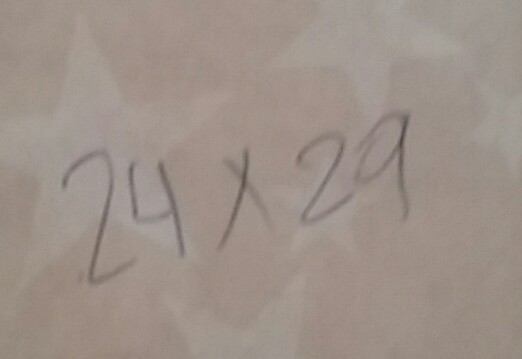 24 x 29